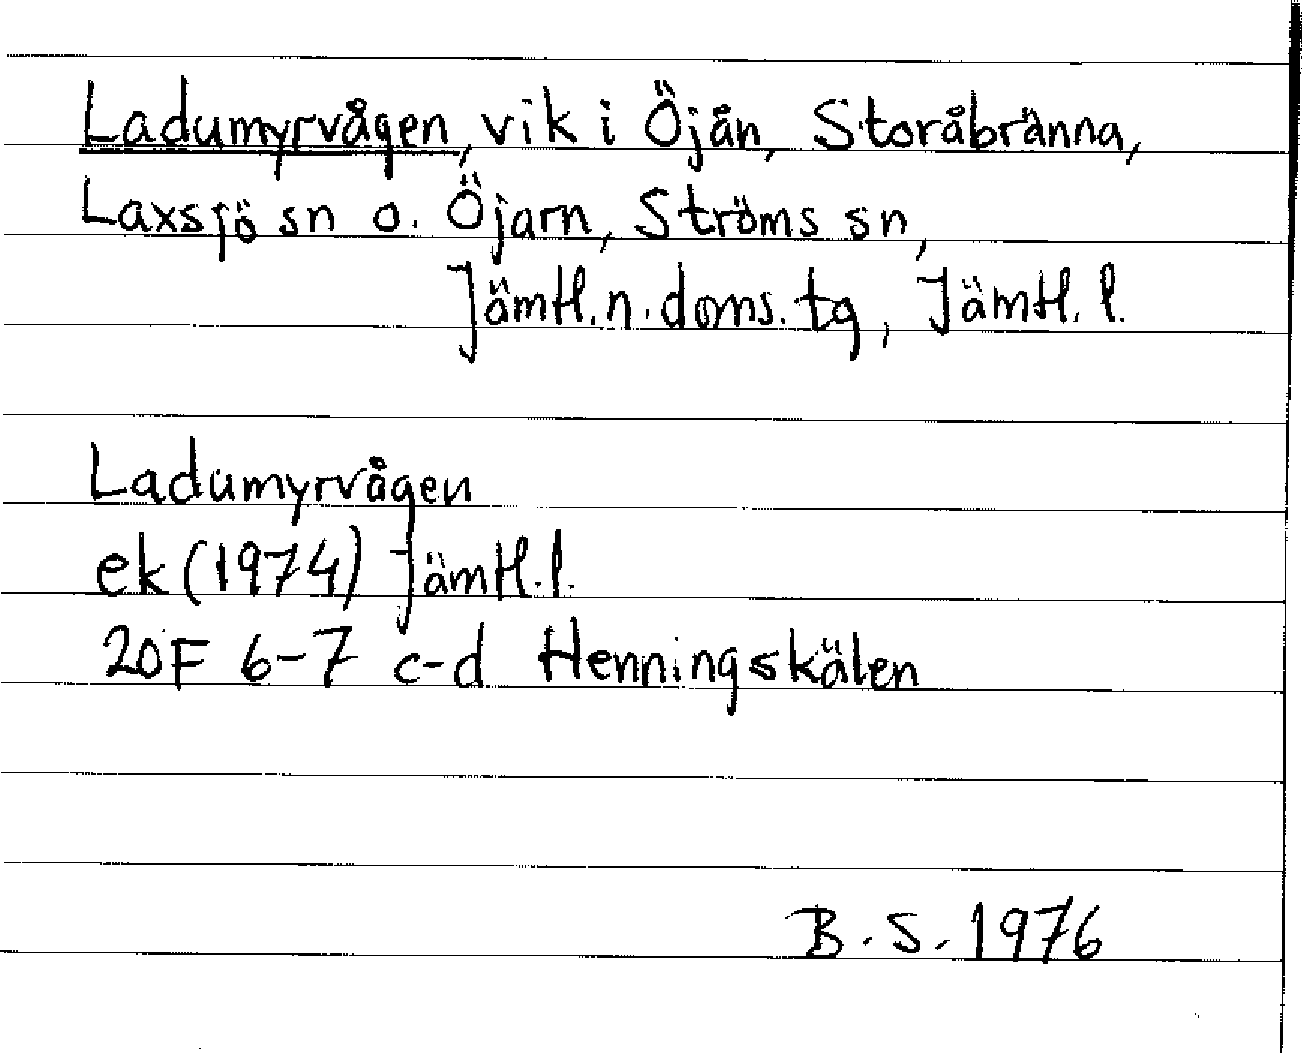 Ladumyrvågen, vik i Öjån, Storåbränna,
Laxsjö sn o. Öjarn, Ströms sn,
Jämtl. n. doms. tg, Jämtl. l.
Ladumyrvågen
ek (1974) Jämtl. l.
20F 6-7 c-d Henningskälen
B. S. 1976